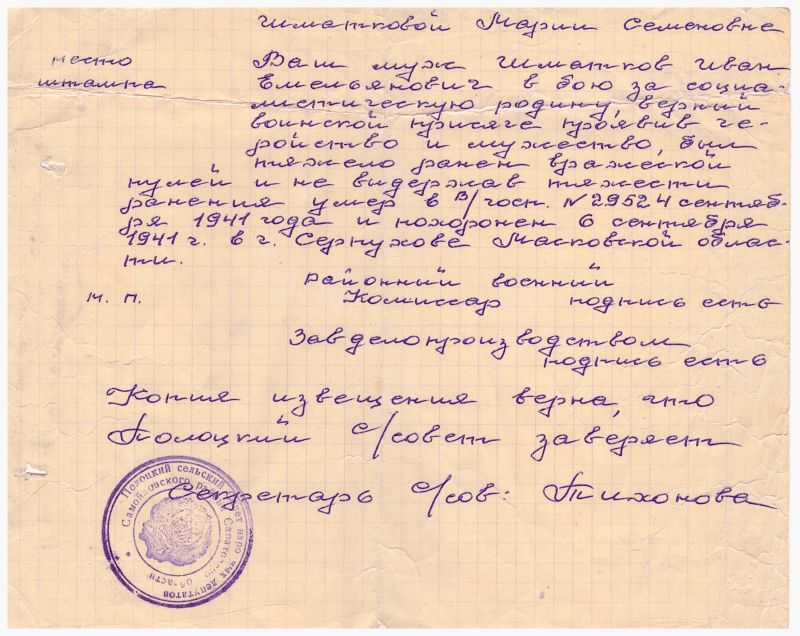 Шматковой Марии Семеновне
место
штампа
Ваш муж Шматков Иван
Емельянович в бою за социа-
листическую родину, верный
воинской присяге проявив ге-
ройство и мужество, был
тяжело ранен вражеской
пулей и не выдержав тяжести
ранения умер в в/госп. N 2952 4 сентяб-
ря 1941 года и похоронен 6 сентября
1941 г. в г. Серпухове Масковской облас-
ти.
Районный военный
м. п. Комиссар подпись есть
Завделопроизводством
подпись есть
Копия извещения верна, что
Полоцкий с/совет заверяет
Секретарь с/сов: Тихонова
Полоцкий сельский
депутатов
Саратовской области